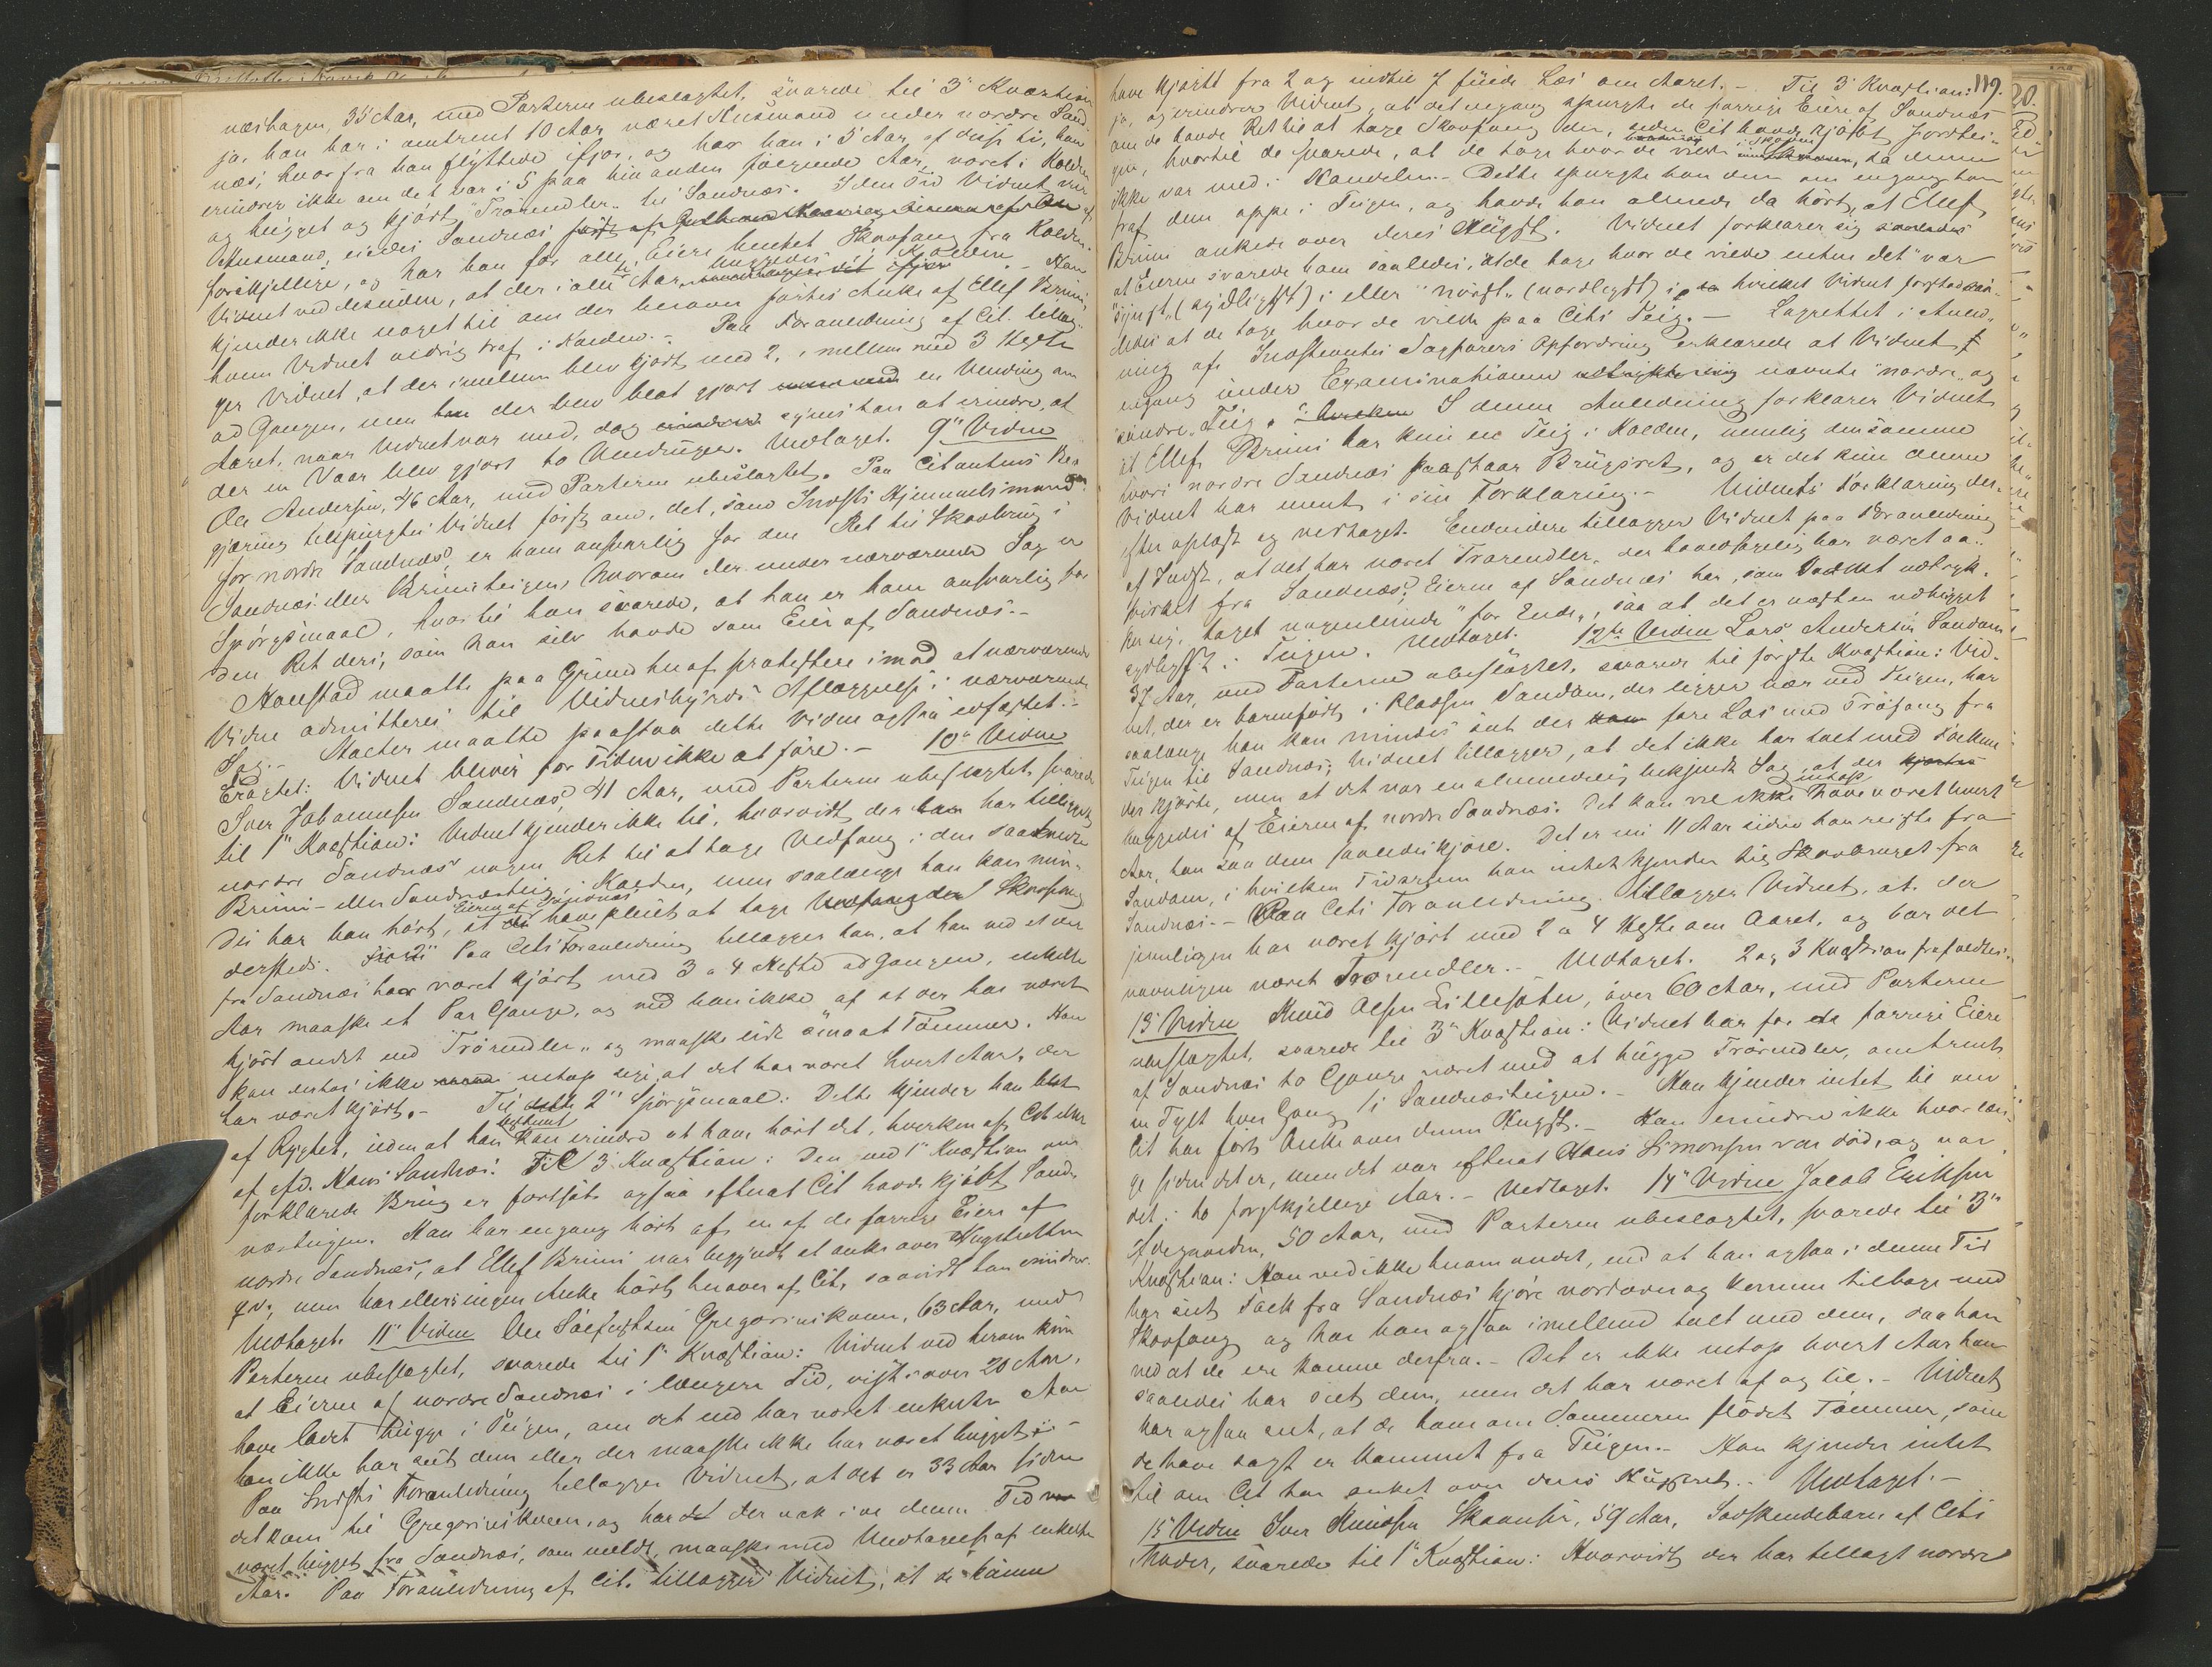 næshagen, 35 Aar, med Parterne ubeslægtet, svarede til 3" Kvæstion
ja, han har i omtrent 10 Aar været Husmand under nordre Sand-
næs, hvorfra han flyttede ifjor, og har han i 5 Aar, af disse ti, han
erindrer ikke om det var i 5 paa hinanden følgende Aar, været i Kolden
og hugget og kjørt "Trørendler" til Sandnæs. I den Tid Vidnet var
Husmand, eiedes Sandnæs af
forskjellige, og har han for alle Eiere hentet Skovfang fra Kolden.
Vidnet ved desuden, at der i alle Aar huggedes i Kolden. Han
kjender ikke noget til om der herover førtes Anke af Ellef Brunis
hvem Vidnet aldrig traf i Kolden. - Paa Foranledning af Cit. tillæg-
ger Vidnet, at der imellem blev kjørt med 2, imellem med 3 Heste
ad Gangen, men der blev blot gjort en Vending om
Aaret, naar Vidnet var med, dog synes han at erindre, at
der en Vaar blev gjort to Vendinger. Vedtaget. 9" Vidne
Ole Andersen, 46 Aar, med Parterne ubeslægtet. Paa Citantens Be-
gjæring tilspurgtes Vidnet først om, det, som Indsts Hjemmelsmand
for nordre Sandnæs, er ham ansvarlig for den Ret til Skovbrug i
Sandnæs eller Bruniteigen, hvorom der under nærværende Sag er
Spørgsmaal, hvortil han svarede, at han er ham ansvarlig for
den Ret deri, som han selv havde som Eier af Sandnæs. -
Haustad maatte paa Grund heraf protestere imod at nærværende
Vidne admitteres til Vidnesbyrds Aflæggelse i nærværende
Sag. - Aacter maatte paastaa dette Vidne ogsaa edfæstet. -
Eragtet: Vidnet bliver for Tiden ikke at føre. - 10" Vidne
Iver Johannesen Sandnæs, 41 Aar, med Parterne ubeslægtet, svarede
til 1" Kvæstion: Vidnet kjender ikke til, hvorvidt der har tilligget
nordre Sandnæs nogen Ret til at tage Vedfang i den saakaldte
Bruni- eller Sandnæsteig i Kolden, men saalænge han kan min-
des har han hørt, at Eieren af Sandnæs have pleiet at tage Skovfang
dersteds. Paa Cits Foranledning tillægger han, at han ved et der
fra Sandnæs har været kjørt med 3 a 4 Heste ad Gangen, enkelte
Aar maaske et Par Gange, og ved han ikke af at der har været
kjørt andet end "Trørendler" og maaske lidt smaat Tømmer. Han
kan heller ikke netop sige, at det har været hvert Aar, der
har været kjørt. - Til 2" Spørgsmaal: Dette kjender han blot
af Rygtet, uden at han bestemt kan erindre at have hørt det, hverken af Cit eller
af afd. Hans Sandnæs. Til 3 Kvæstion: Den ved 1" Kvæstion om
forklarede Brug er fortsat ogsaa efterat Cit havde kjøbt Sand-
næsteigen. Han har engang hørt af en af de forrige Eiere af
nordre Sandnæs, at Ellef Bruni var begyndt at anke over Hugstretten
q. v., men har ellers ingen Anke hørt herover af Cit, saavidt han erindrer.
Vedtaget. 11" Vidne Ole Gregorsenskveen, 63 Aar, med
Parterne ubeslægtet, svarede til 1" Kvæstion: Vidnet ved herom kun
at Eierne af nordre Sandnæs i længere Tid, vist over 20 Aar,
have ladet hugge i Teigen, om det end har været enkelte Aar
han ikke har seet dem eller der maaske ikke har været hugget. -
Paa Indsts Foranledning tillægger Vidnet, at det er 33 Aar siden
det kom til Gregorsenskveen, og har der nok i al denne Tid
været hugget fra Sandnæs, som meldt, maaske med Undtagelse af enkelte
Aar. Paa Foranledning af Cit. tillægger Vidnet, at de kunne
119.
have kjørt fra 2 og indtil 7 fulde Læs om Aaret. - Til 3 Kvæstion:
ja, og erindrer Vidnet, at det engang spurgte de forrige Eiere af Sandnæs
om de havde Ret til at tage Skovfang der, siden Cit havde kjøbt Jordtei-
gen, hvortil de svarede, at de toge hvor de vilde i Skoven, da denne
ikke var med i Handelen. - Dette spurgte han dem om engang han
traf dem oppe i Teigen, og havde han allerede da hørt, at Ellef
Bruni ankede over deres Hugst. Vidnet forklarer sig saaledes
at Eierne svarede ham saaledes, at de tage hvor de vilde enten det "var
synst" (sydligst) i eller "nørst" (nordligst) i, hvilket Vidnet forstod saa-
ledes at de toge hvor de vilde paa Cits Teig. - Lagrettet i Anled-
ning af Indstævntes Sagførers Opfordring erklærede at Vidnet
engang under Examinationen nævnte "nordre" og
"søndre" Teig. I denne Anledning forklarer Vidnet
at Ellef Bruni har kun en Teig i Kolden, nemlig den samme
hvori nordre Sandnæs paastaar Brugsret, og er det kun denne
Vidnet har ment i sin Forklaring. - Vidnets Forklaring der-
efter oplæst og vedtaget. Endvidere tillægger Vidnet paa Foranledning
af Indst, at det har været "Trørendler" der hovedsagelig har været aa-
virket fra Sandnæs; Eierne af Sandnæs har, som Vidnet udtryk-
ker sig, taget nogenlunde "for Ende", saa at det er næsten udhugget
sydligst i Teigen. Vedtaget. 12te Vidne Lars Andersen Sandam
37 Aar, med Parterne ubeslægtet, svarede til første Kvæstion: Vid-
net, der er barnefødt i Pladsen Sandam, der ligger nær ved Teigen, har
saalænge han kan mindes seet der fare Læs med Trøfang fra
Teigen til Sandnæs; Vidnet tillægger, at det ikke har talt med Folkene
der kjørte, men at det var en almindelig bekjendt Sag, at der
huggedes af Eierne af nordre Sandnæs. Det kan vel ikke netop have været hvert
Aar, han saa dem saaledes kjøre. Det er nu 11 Aar siden han reiste fra
Sandam, i hvilken Tidsrum han intet kjender til Skovbruget fra
Sandnæs. - Paa Cits Foranledning tillægger Vidnet, at der
jevnligen har været kjørt med 2 a 4 Heste om Aaret, og har det
navnligen været Trørendler. - Vedtaget. 2 og 3 Kvæstion frafaldtes.
13 Vidne Knud Olsen Lillesæter, over 60 Aar, med Parterne
ubeslægtet, svarede til 3" Kvæstion: Vidnet har for de forrige Eiere
af Sandnæs to Gange været med at hugge Trørendler, omtrent
en Tylt hver Gang i Sandnæsteigen. - Han kjender intet til om
Cit har ført Anke over denne Hugst. - Han erindrer ikke hvor læn-
ge siden det er, men det var efterat Hans Simonsen var død, og var
det i to forskjellige Aar. - Vedtaget. 14" Vidne Jacob Eriksen
Ødegaarden, 50 Aar, med Parterne ubeslægtet, svarede til 3"
Kvæstion: Han ved ikke herom andet, end at han ogsaa i denne Tid
har seet Folk fra Sandnæs kjøre nordover og komme tilbage med
Skovfang og har han ogsaa imellem talt med dem, saa han
ved at de ere komne derfra. - Det er ikke netop hvert Aar han
saaledes har seet dem, men det har været af og til. - Vidnet
har ogsaa seet, at de have om Sommeren flødet Tømmer, som
de have sagt er kommet fra Teigen. - Han kjender intet
til om Cit har anket over deres Hugstret. Vedtaget. -
15 Vidne Iver Knudsen Skaanser, 59 Aar, Sødskendebarn af Cits
Moder, svarede til 1" Kvæstion: Hvorvidt der har tillagt nordre